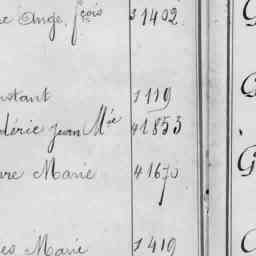 Ange. fçois 1402
nstant 1119
déric Jean Mie 41853
re Marie 41670
es Marie 1419